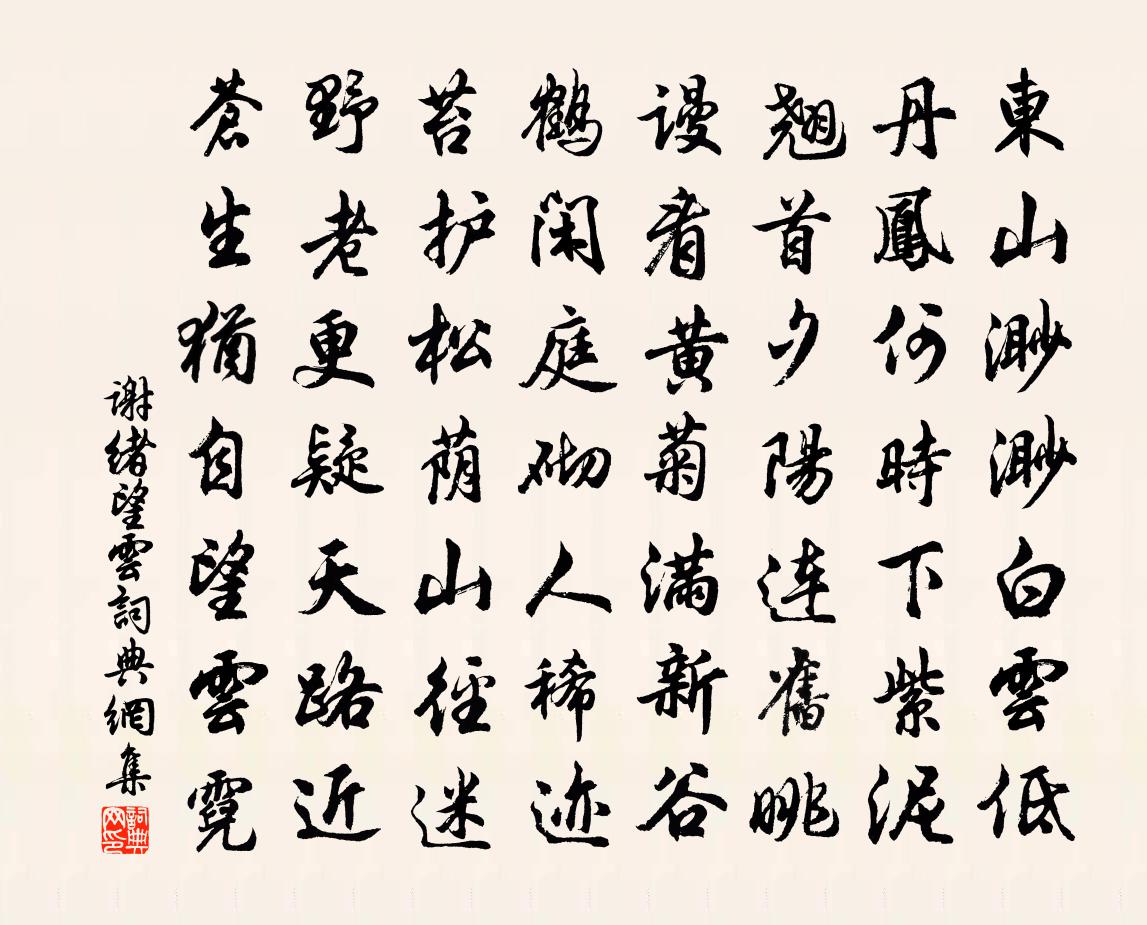 東山渺渺白雲低
丹鳳何時下紫泥
翹首夕陽連舊眺
谩看黃菊满新谷
鶴閑庭砌人稀迹
苔护松荫山徑迷
野老更疑天路近
蒼生猶自望雲霓
谢绪望雲詞典網集
詞典網印